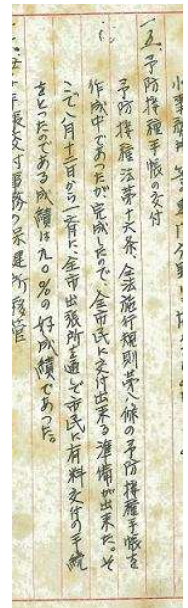 一五、予防接種手帳の交付
予防接種法第十六条、仝法施行規則第八條の予防接種手帳を
作成中であったが完成したので、全市民に交付出来る準備が出来た。そ
こで八月十二日から一斉に、全市出張所を通で市民に有料交付の手続
をとったのである成績は九〇%の好成績であった。
手帳交付事務の保健所移管